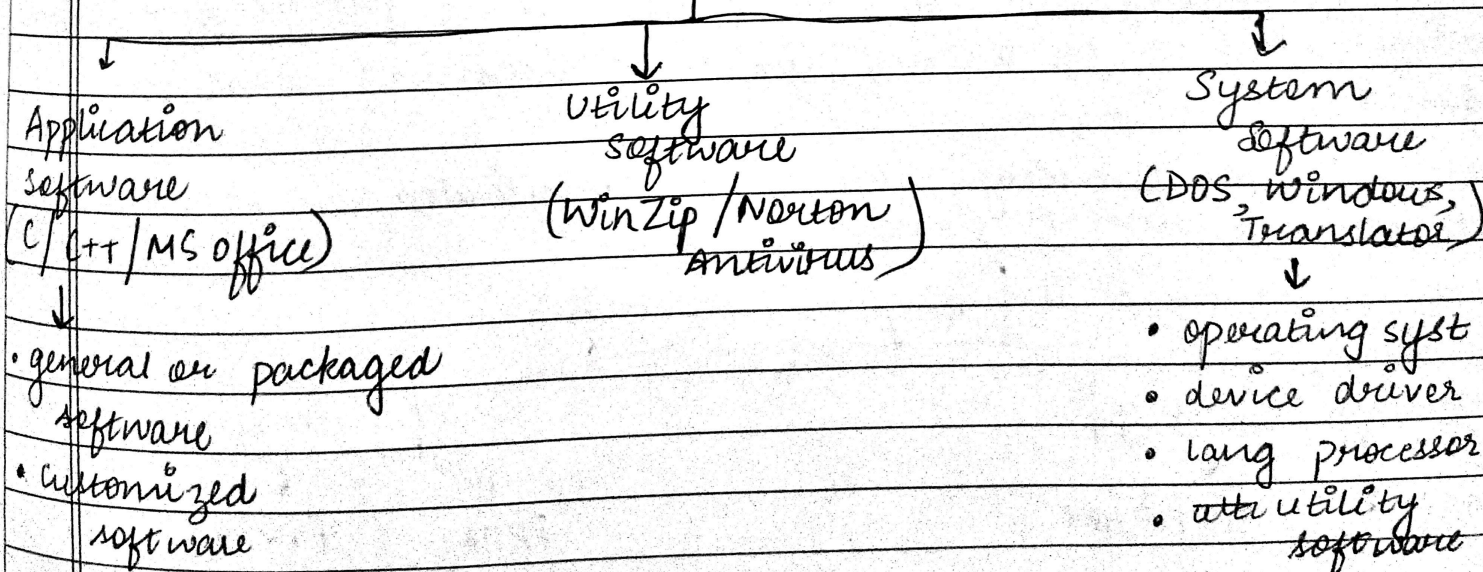 Application
software
(C/C++/MS office)
• general or packaged
software
• customized
software
Utility
software
(WinZip/Norton
Antivirus)
System
Software
(DOS, Windows,
Translator)
• operating syst
• device driver
• lang processor
• utility
software